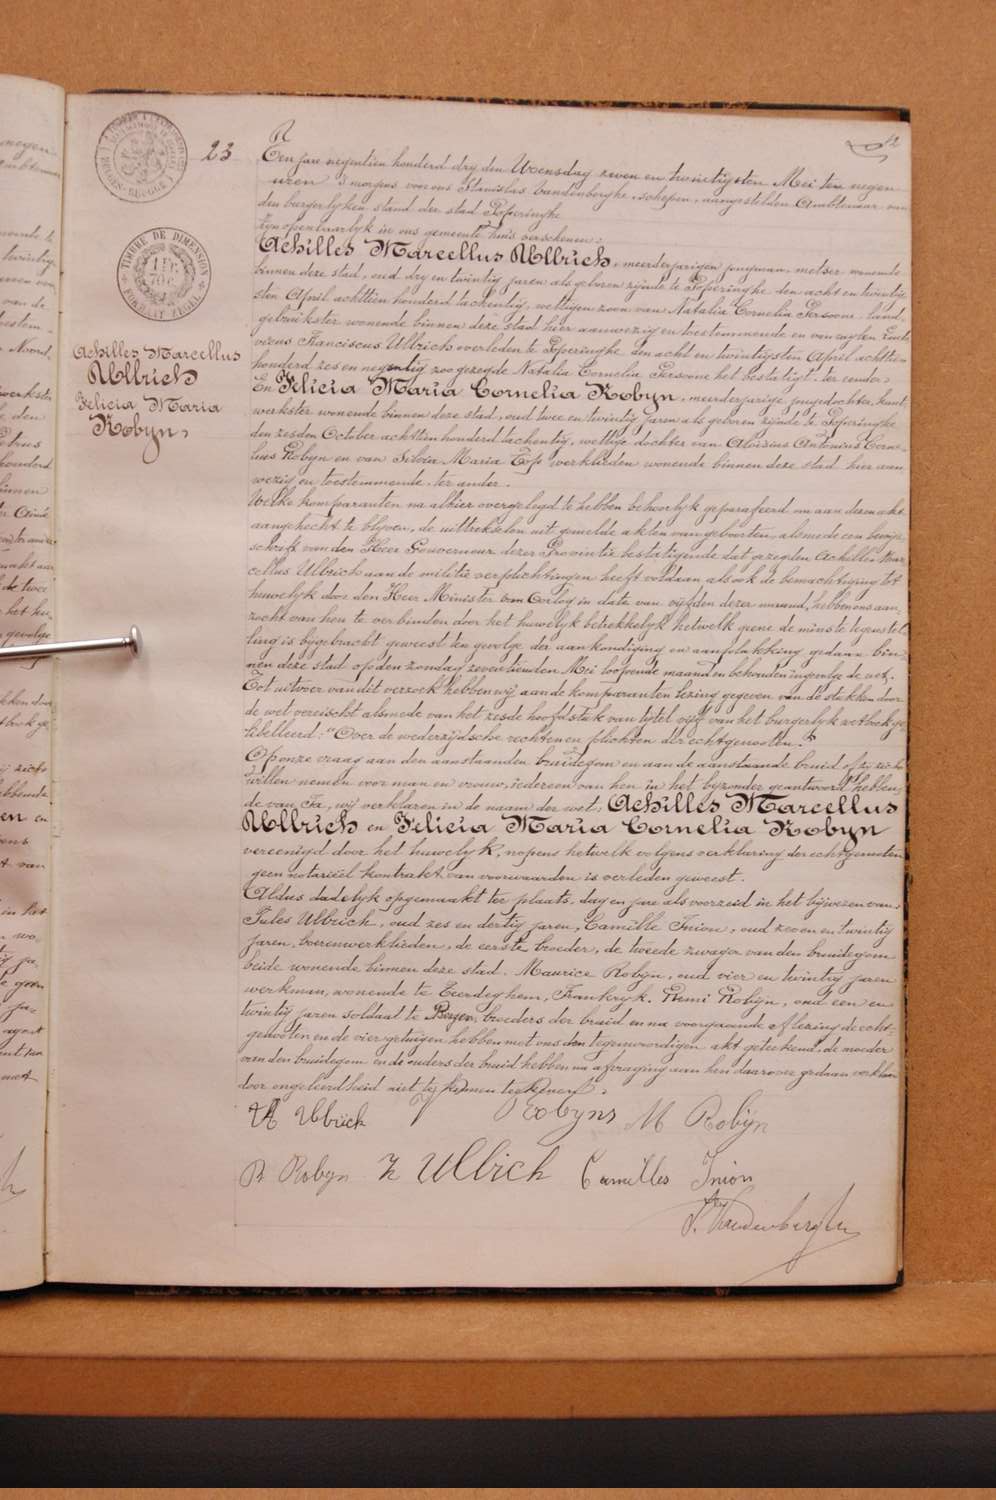 12
23
Een jare negentien honderd dry den Woensdag zeven en twintigsten Mei ten negen
uren 's morgens voor ons Stanislas Vandenberghe, schepen, aangestelden Ambtenaar van
den burgerlyken stand der stad Poperinghe
zyn openbaarlyk in ons gemeente huis verschenen:
Achilles Marcellus Ullrich, meerderjarigen jongman, metser, wonende
binnen deze stad, oud dry en twintig jaren als geboren zijnde te Poperinghe den acht en twintig-
sten April achttien honderd tachentig, wettigen zoon van Natalia Cornelia Persoone, land-
gebruikster wonende binnen deze stad hier aanwezig en toestemmende en van wylen Ludo-
vicus Franciscus Ullrich overleden te Poperinghe den acht en twintigsten April achttien
honderd zes en negentig zoo gezegde Natalia Cornelia Persoone het bestatigt, ter eender,
En Felicia Maria Cornelia Robyn, meerderjarige jongedochter, kant-
werkster wonende binnen deze stad, oud twee en twintig jaren als geboren zijnde te Poperinghe
den zesden October achttien honderd tachentig, wettige dochter van Aloisius Antonius Corne-
lius Robyn en van Silvia Maria Top werklieden wonende binnen deze stad hier aan-
wezig en toestemmende, ter ander.
Welke komparanten na alhier overgelegd te hebben behoorlyk geparafeerd om aan dezen akt
aangehecht te blyven, de uittrekselen uit gemelde akten van geboorten, alsmede een bewys-
schrift van den Heer Gouverneur dezer Provintie bestatigende dat gezegden Achilles Mar-
cellus Ullrich aan de militie verplichtingen heeft voldaan alsook de bemachtiging tot
huwelyk door den Heer Minister van Oorlog in date van vijfden dezer maand, hebben ons aan-
zocht van hen te verbinden door het huwelyk betrekkelyk hetwelk gene de minste tegenstel-
ling is bygebracht geweest ten gevolge der aankondiging en aanplakking gedaan bin-
nen deze stad op den zondag zeventienden Mei loopende maand en behouden ingevolge de wet.
Tot uitvoer van dit verzoek hebben wij aan de komparanten lezing gegeven van de stukken door
de wet vereischt alsmede van het zesde hoofdstuk van tytel vijf van het burgerlyk wetboek ge-
libelleerd: "Over de wederzijdsche rechten en plichten der echtgenooten."
Op onze vraag aan den aanstaanden bruidegom en aan de aanstaande bruid of zij zich
willen nemen voor man en vrouw, iedereen van hen in het byzonder geantwoord hebben-
de van Ja, wij verklaren in de naam der wet: Achilles Marcellus
Ullrich en Felicia Maria Cornelia Robyn
vereenigd door het huwelyk, nopens hetwelk volgens verklaring der echtgenooten
geen notarieël kontrakt van voorwaarden is verleden geweest.
Aldus dadelyk opgemaakt ter plaats, dag en jare als voorzeid in het bijwezen van
Jules Ullrich, oud zes en dertig jaren, Camille Inion, oud zeven en twintig
jaren, boerenwerklieden, de eerste broeder, de tweede zwager van den bruidegom
beide wonende binnen deze stad. Maurice Robyn, oud vier en twintig jaren
werkman, wonende te Eecdeghem, Frankryk. Remi Robijn, oud een en
twintig jaren soldaat te Bergen, broeders der bruid en na voorgaende aflezing de echt-
genooten en de vier getuigen hebben met ons den tegenwoordigen akt geteekend, de moeder
van den bruidegom en de ouders der bruid hebben na afvraging aan hen daarover gedaan verklaard
door ongeleerdheid niet te kunnen teekenen.
A Ullrich Robyns M Robijn
R Robyn Ullrich Camilles Inion
S. Vandenberghe
TIMBRE DE DIMENSION
FORMAAT ZEGEL
Achilles Marcellus
Ullrich
Felicia Maria
Robyn,